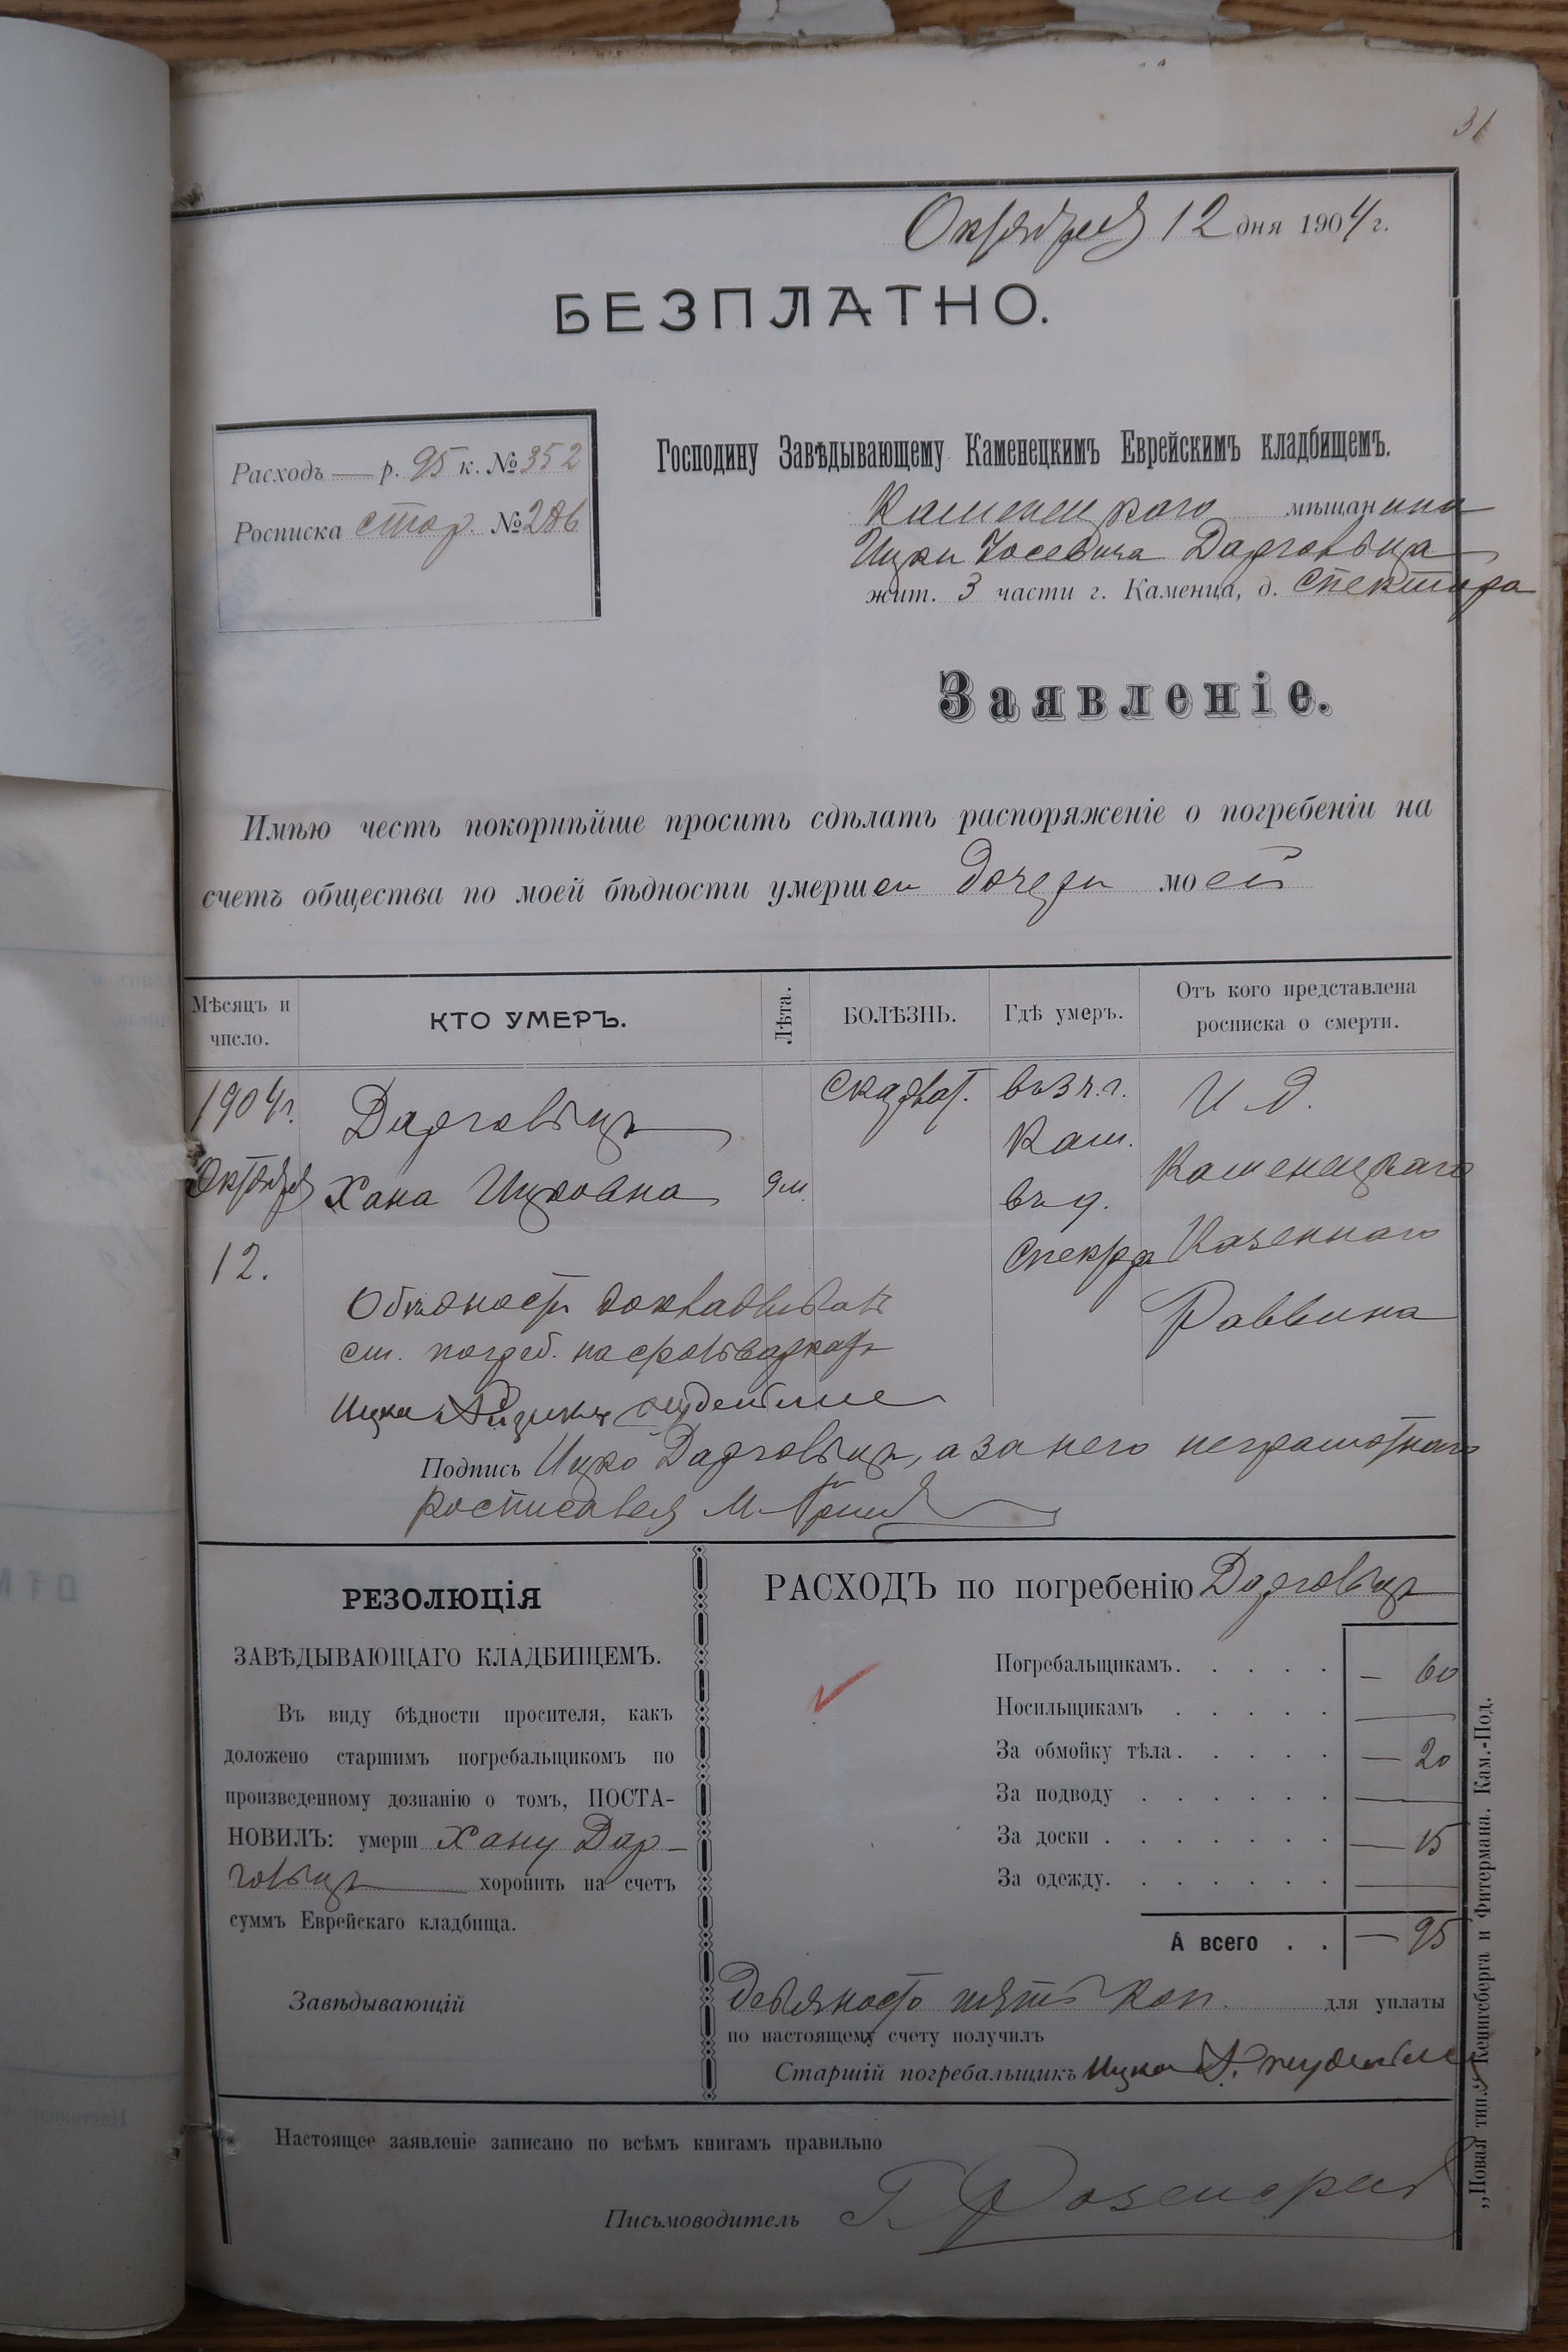 31
Октября 12 дня 1904 г.
БЕЗПЛАТНО.
Расходъ — р. 95 к. № 352
Росписка стор. № 286
Господину Завѣдывающему Каменецкимъ Еврейскимъ кладбищемъ.
Каменецкаго мѣщанина
Ицки Іосевича Дарговица
жит. 3 части г. Каменца, д. Спектора
Заявленіе.
Имѣю честь покорнѣйше просить сдѣлать распоряженіе о погребеніи на
счетъ общества по моей бѣдности умершей дочери моей
Мѣсяцъ и число.
КТО УМЕРЪ.
Лѣта.
БОЛѢЗНЬ.
Гдѣ умеръ.
Отъ кого представлена росписка о смерти.
1904 г. Скарлат. въ 3 ч. г. И. д.
Дарговицъ Кам.
Октября Хана Ицковна 9 м. въ д. Каменецкаго
12. Казеннаго
О бѣдности докладывалъ Раввина
ст. погреб.
Ицка
Подпись Ицко Дарговицъ, а за него неграмотнаго
росписался М.
РЕЗОЛЮЦІЯ
ЗАВѢДЫВАЮЩАГО КЛАДБИЩЕМЪ.
Въ виду бѣдности просителя, какъ
доложено старшимъ погребальщикомъ по
произведенному дознанію о томъ, ПОСТА-
НОВИЛЪ: умерш Хану Дар-
говицъ хоронить на счетъ
суммъ Еврейскаго кладбища.
Завѣдывающій
РАСХОДЪ по погребенію Дарговицъ
Погребальщикамъ. . . . . — 60
Носильщикамъ . . . . . —
За обмойку тѣла. . . . . — 20
За подводу . . . . . . —
За доски . . . . . . . — 15
За одежду. . . . . . . —
А всего . . — 95
Девяносто пять коп. для уплаты
по настоящему счету получилъ
Старшій погребальщикъ Ицка
Настоящее заявленіе записано по всѣмъ книгамъ правильно
Письмоводитель Г.
„Новая тип.“ Кенигсберга и Фитермана. Кам.-Под.